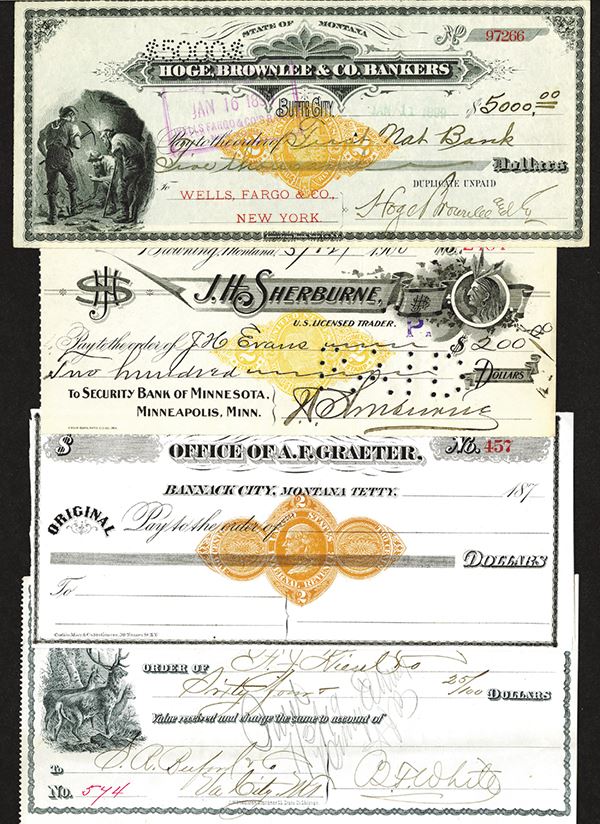 STATE OF MONTANA
$5000$
No 97266
HOGE, BROWNLEE & CO. BANKERS
BUTTE CITY,
JAN 16
WELLS FARGO & CO'S
$5000.00
Pay to the order of First Nat Bank
Five thousand Dollars
DUPLICATE UNPAID
To
WELLS, FARGO & CO.,
NEW YORK.
Hoge Brownlee & Co
Browning, Montana, 1900 No.
JHS
J.H. SHERBURNE,
U.S. LICENSED TRADER.
Pay to the order of J H Evans $200
Two hundred DOLLARS
PAID
TO SECURITY BANK OF MINNESOTA,
MINNEAPOLIS, MINN.
J H Sherburne
$ OFFICE OF A.F. GRAETER, No. 457
BANNACK CITY, MONTANA TETTY, 187
ORIGINAL
Pay to the order of
2
UNITED STATES
INTERNAL REVENUE
2
DOLLARS
To
ORDER OF
Sixty four 25/100 DOLLARS
Value received and charge the same to account of
To
Va City, M
No. 574
B F White